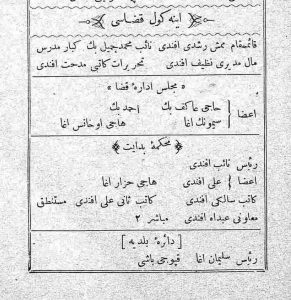 اینه كول قضاسی
قائممقام ممش رشدی افندی نائب محمد جمیل بك كبار مدرس
مال مدیری نظیف افندی تحریرات كاتبی مدحت افندی
« مجلس اداره‌ٔ قضا »
اعضا { حاجی عاكف بك احمد بك
سیمونك اغا هاجی اوخانس اغا
محكمه‌ٔ بدایت
رئیس نائب افندی
اعضا { علی افندی هاجی حزار اغا
كاتب سالكی افندی كاتب ثانی علی افندی مستنطقی
معاونی عبداه افندی مباشر ٢
[ دائره‌ٔ بلدیه ]
رئیس سلیمان اغا قپوجی باشی